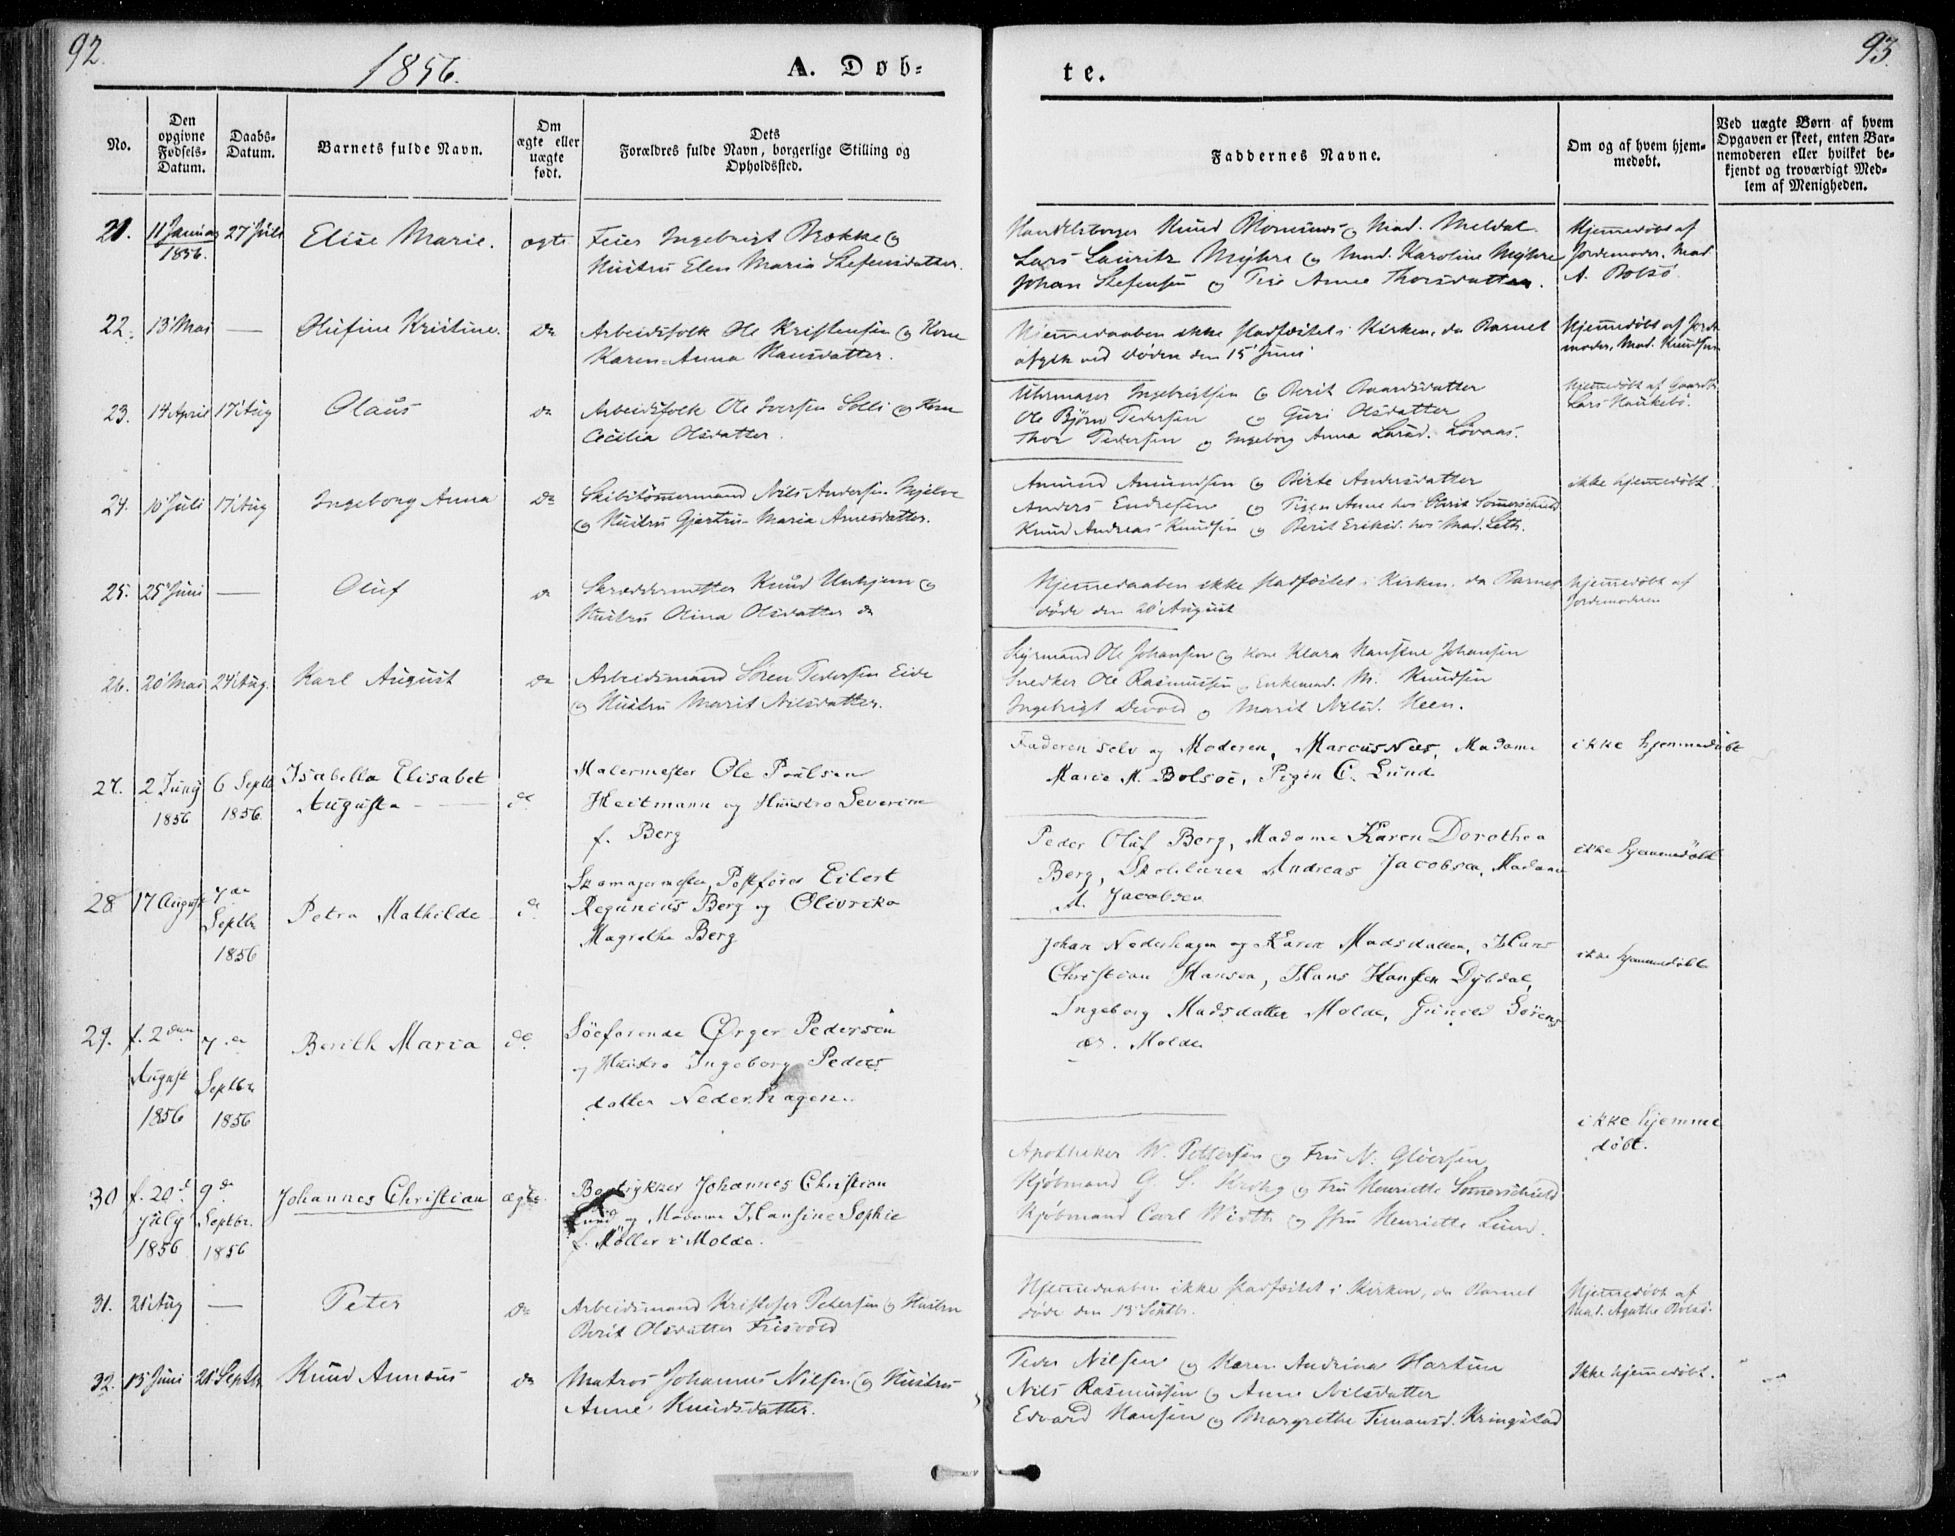 92.
1856.
A. Døb-
te.
93.
No.
Den opgivne Fødsels-Datum.
Daabs-Datum.
Barnets fulde Navn.
Om ægte eller uægte født.
Dets Forældres fulde Navn, borgerlige Stilling og Opholdssted.
Faddernes Navne.
Om og af hvem hjem-medøbt.
Ved uægte Børn af hvem Opgaven er skeet, enten Bar-nemoderen eller hvilket be-kjendt og troværdigt Med-lem af Menigheden.
21. 11 Januar 1856. 27 Juli Elise Marie. ægte
Feier Ingebrigt Brække og
Hustru Elen Maria Stefensdatter.
Handelsborger Knud & Mad. Meldal
Lars Lauritz Myhre og Mad. Karoline Myhre
Johan Stefensen og Pige Anne Thorsdatter.
Hjemmedøbt af
Jordemoder, Mad.
A. Bolsø.
22. 13 Mai — Olufine Kristine. do
Arbeidsfolk Ole Kristensen og Kone
Karen Anna Hansdatter.
Hjemmedaaben ikke stadfæstet i Kirken, da Barnet
afgik ved døden den 15 Juni
Hjemmedøbt af Jorde-
moder, Mad. Knudsen
23. 14 April 17 Aug Olaus do
Arbeidsfolk Ole Iversen Solli og Kone
Cecilia Olsdatter.
Uhrmager Ingebrigtsen og Berit Baardsdatter
Ole Bjørn Pedersen og Guri Olsdatter
Thor Pedersen og Ingeborg Anna Larsd. Løvaas.
Hjemmedøbt af Gaardb.
Lars Haukebø.
24. 10 Juli 17 Aug Ingeborg Anna do
Skibstømmermand Nils Andersen Mjelve
og Hustru Gjertru-Maria Arnesdatter.
Amund Amundsen og Birte Andersdatter
Anders Endresen og Pigen Anne hos Sommerschield
Knud Andreas Knudsen og Berit Eriksd. hos Mad. Leth.
ikke hjemmedøbt.
25. 25 Juni — Oluf do
Skræddermester Knud Unhjem og
Hustru Olina Olsdatter do
Hjemmedaaben ikke stadfæstet i Kirken, da Barnet
døde den 20 August
hjemmedøbt af
Jordemoderen
26. 20 Mai 24 Aug. Karl August do
Arbeidsmand Søren Pedersen Eide
og Hustru Marit Nilsdatter.
Styrmand Ole Johansen og Kone Klara Hansine Johansen
Snedker Ole Rasmussen og Enkemad. M. Knudsen
Ingebrigt Devold og Marit Nilsd. Heen.
27. 2 Juny 1856 6 Septb 1856. Isabella Elisabet
Augusta - do
Malermester Ole Poulsen
Heitmann og Hustro Severine
f. Berg
Faderen selv og Moderen, Marcus Næs, Madame
Marie M. Bolsøe, Pigen C. Lund
ikke hjemmedøbt
28 17 August 7de Septbr 1856 Petra Mathilde do
Skomagermester, Postfører Eilert
Reginius Berg og Olivrika
Magrethe Berg
Peder Oluf Berg, Madame Karen Dorothea
Berg, Skolelærer Andreas Jacobsen, Madame
A. Jacobsen
ikke hjemmedøbt
29. f. 2den August 1856 7de Septbr 1856 Berith Maria do
Søefarende Ørger Pedersen
og Hustro Ingeborg Peders
datter Nederhagen.
Johan Nederhagen og Karen Madsdatter, Hans
Christian Hansen, Hans Hansen Dybdal,
Ingeborg Madsdatter Molde, Gunild Sørens
dr. Molde
ikke hjemmedøbt
30 f. 20de July 1856 9de Septbr. 1856 Johannes Christian ægte.
Bogtrykker Johannes Christian
Lund og Madame Hansine Sophie
f. Møller i Molde.
Apotheker W. Pettersen og Fru N. Gløersen
Kjøbmand G. S. Krohg og Fru Henriette Sommerschield
Kjøbmand Carl Wirth og Fru Henriette Lund.
ikke hjemme
døbt.
31. 21 Aug — Peter do
Arbeidsmand Kristofer Petersen og Hustru
Berit Olsdatter Frisvold
Hjemmedaaben ikke stadfæstet i Kirken, da Barnet
døde den 13 Septb.
Hjemmedøbt af
Mad. Agathe Bolsø.
32. 13 Juni 21 Septbr Knud Annæus do
Matros Johannes Nilsen og Hustru
Anne Knudsdatter.
Peder Nilsen og Karen Andrina
Nils Rasmussen og Anne Nilsdatter
Edvard Hansen og Margrethe Timansd. Kringstad
Ikke hjemmedøbt.